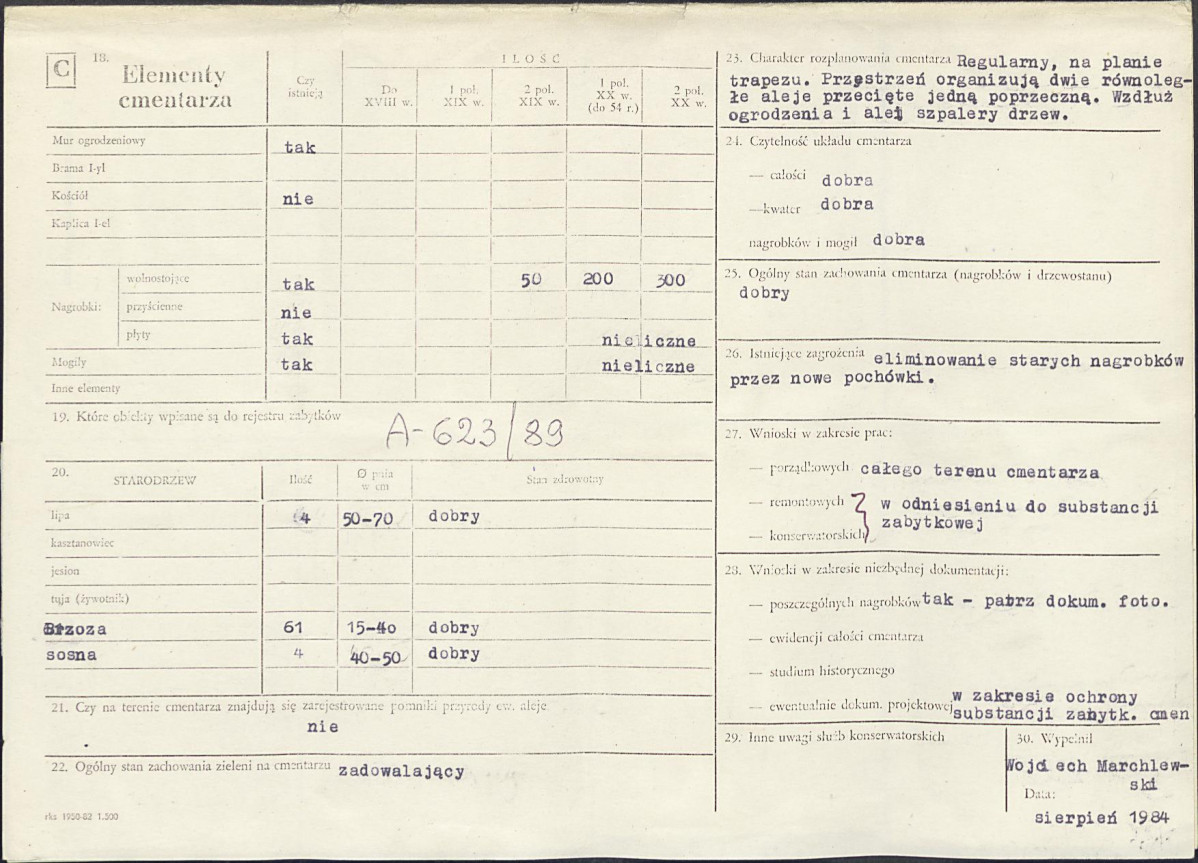 C
18. Elementy
cmentarza
Czy
istnieją
ILOŚĆ
Do
XVIII w.
1 poł.
XIX w.
2 poł.
XIX w.
1 poł.
XX w.
(do 54 r.)
2 poł.
XX w.
Mur ogrodzeniowy tak
Brama I-yl
Kościół nie
Kaplica I-el
Nagrobki:
wolnostojące tak 50 200 300
przyścienne nie
płyty tak nieliczne
Mogiły tak nieliczne
Inne elementy
19. Które obiekty wpisane są do rejestru zabytków
A-623/89
20. STARODRZEW Ilość Ø pnia
w cm Stan zdrowotny
lipa 4 50-70 dobry
kasztanowiec
jesion
tuja (żywotnik)
Brzoza 61 15-40 dobry
sosna 4 40-50 dobry
21. Czy na terenie cmentarza znajdują się zarejestrowane pomniki przyrody ew. aleje
nie
22. Ogólny stan zachowania zieleni na cmentarzu zadowalający
rks 1950-82 1.500
23. Charakter rozplanowania cmentarza Regularny, na planie
trapezu. Przestrzeń organizują dwie równoleg-
łe aleje przecięte jedną poprzeczną. Wzdłuż
ogrodzenia i alei szpalery drzew.
24. Czytelność układu cmentarza
— całości dobra
— kwater dobra
nagrobków i mogił dobra
25. Ogólny stan zachowania cmentarza (nagrobków i drzewostanu)
dobry
26. Istniejące zagrożenia eliminowanie starych nagrobków
przez nowe pochówki.
27. Wnioski w zakresie prac:
— porządkowych całego terenu cmentarza
— remontowych w odniesieniu do substancji
zabytkowej
— konserwatorskich
28. Wnioski w zakresie niezbędnej dokumentacji:
— poszczególnych nagrobków tak - patrz dokum. foto.
— ewidencji całości cmentarza
— studium historycznego
— ewentualnie dokum. projektowej w zakresie ochrony
substancji zabytk. cmen
29. Inne uwagi służb konserwatorskich
30. Wypełnił
Wojciech Marchlew-
ski
Data:
sierpień 1984